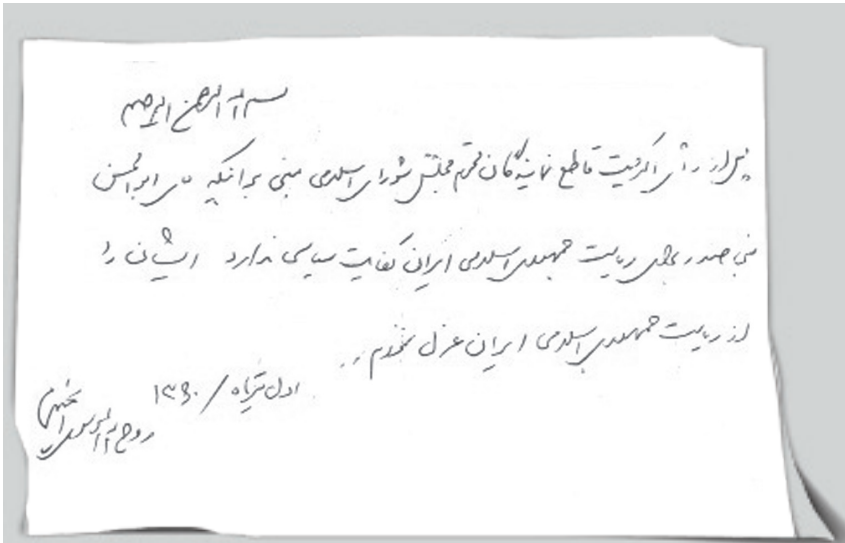 بسم الله الرحمن الرحیم
پس از رأی اکثریت قاطع نمایندگان محترم مجلس شورای اسلامی مبنی بر آنکه آقای ابوالحسن
بنی صدر برای ریاست جمهوری اسلامی ایران کفایت سیاسی ندارد ایشان را
از ریاست جمهوری اسلامی ایران عزل نمودم
اول تیرماه / ۱۳۶۰
روح الله الموسوی الخمینی